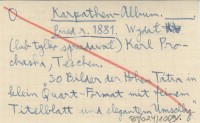 Karpathen-Album.
przed r. 1881. Wydał
(lub tylko sprzedawał) Karl Pro-
chaska, Teschen.
30 Bilder der Hohen Tatra in
klein Quart-Format mit feinem
Titelblatt und elegantem Umschlag